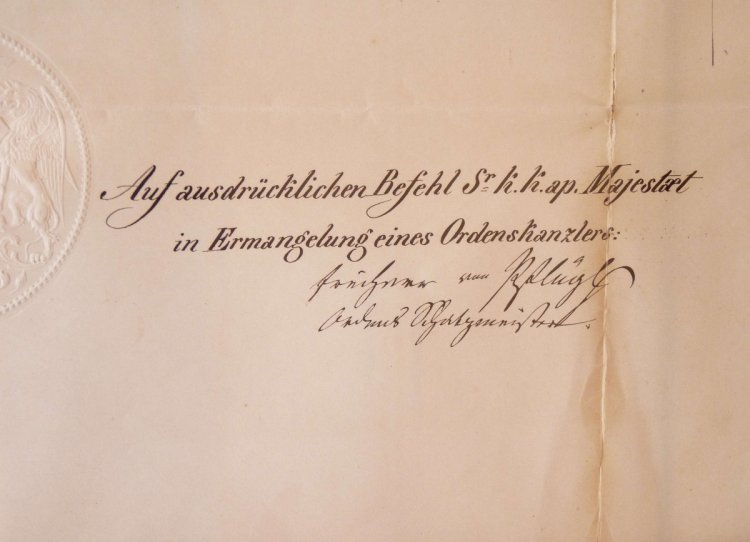 Auf ausdrücklichen Befehl Sr. k. k. ap. Majestæt
in Ermangelung eines Ordenskanzlers:
von Pflügl
Ordens Schatzmeister.